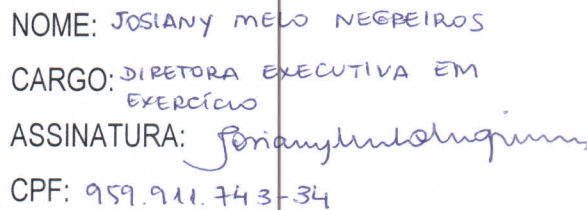 NOME: JOSIANY MELO NEGREIROS
CARGO: DIRETORA EXECUTIVA EM
EXERCÍCIO
ASSINATURA: Josiany Melo Negreiros
CPF: 959.911.743-34